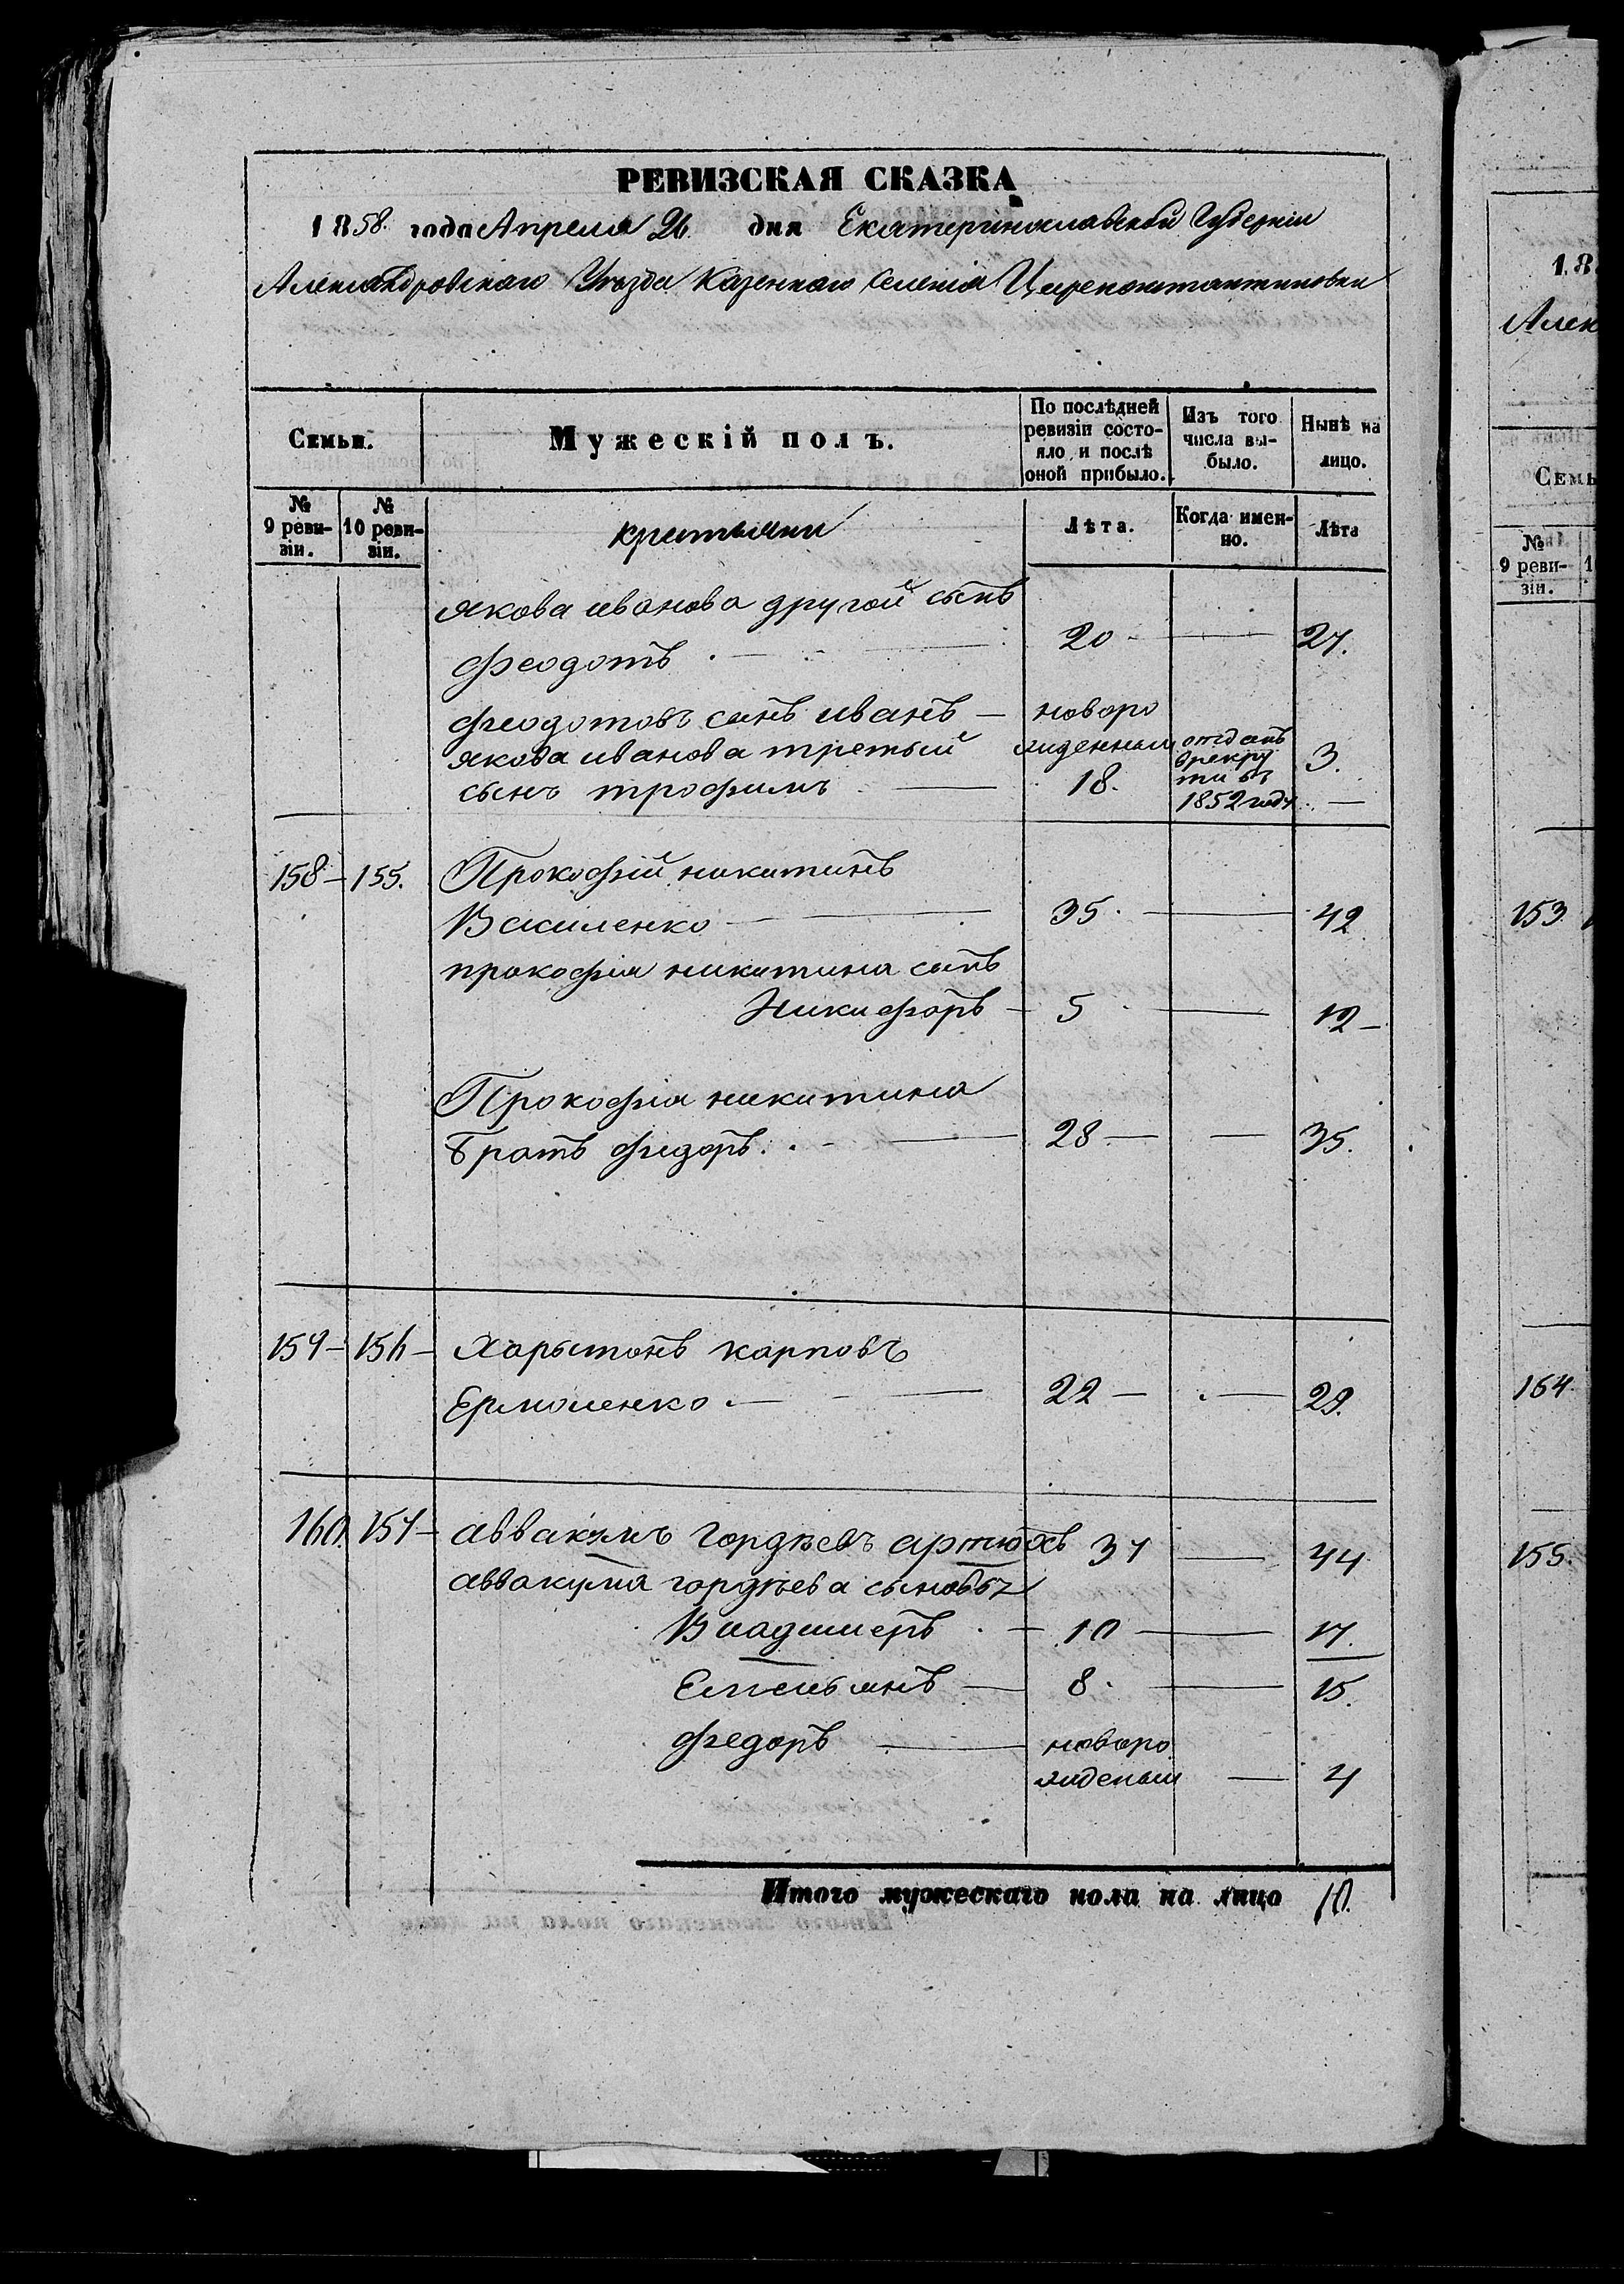 РЕВИЗСКАЯ СКАЗКА
1858. года Апреля 26. дня Екатеринославской Губернии
Александровскаго Уезда Казеннаго Селенія Цареконстантиновки
Семьи. Мужескій полъ. По послѣдней ревизіи состояло и послѣ оной прибыло. Изъ того числа выбыло. Нынѣ на лицо.
№ 9 ревизіи. № 10 ревизіи. крестьяни Лѣта. Когда именно. Лѣта
якова иванова другой сынъ
феодотъ 20 — 27.
феодотовъ сынъ иванъ — новорожденный 3.
якова иванова третый
сынъ трофимъ — 18. отданъ врекруты въ 1852 году —
158 — 155. Прокофій никитинъ
Василенко — 35. — 42
прокофія никитина сынъ
Никифоръ — 5 — 12 —
Прокофія никитина
братъ федоръ. — 28 — — 35.
159 — 156 — Харытонъ карповъ
Ермоленко. — 22 — — 29.
160. 157 — аввакумъ гордѣевъ артюхъ 37 — 44
аввакума гордѣева сыновья
Владимеръ — 10 — 17.
Емельянъ — 8. — 15.
федоръ — новорожденый — 4
Итого мужескаго пола на лицо 10.
18
Алек
Семь
№ 9 ревизіи.
153
164
155.